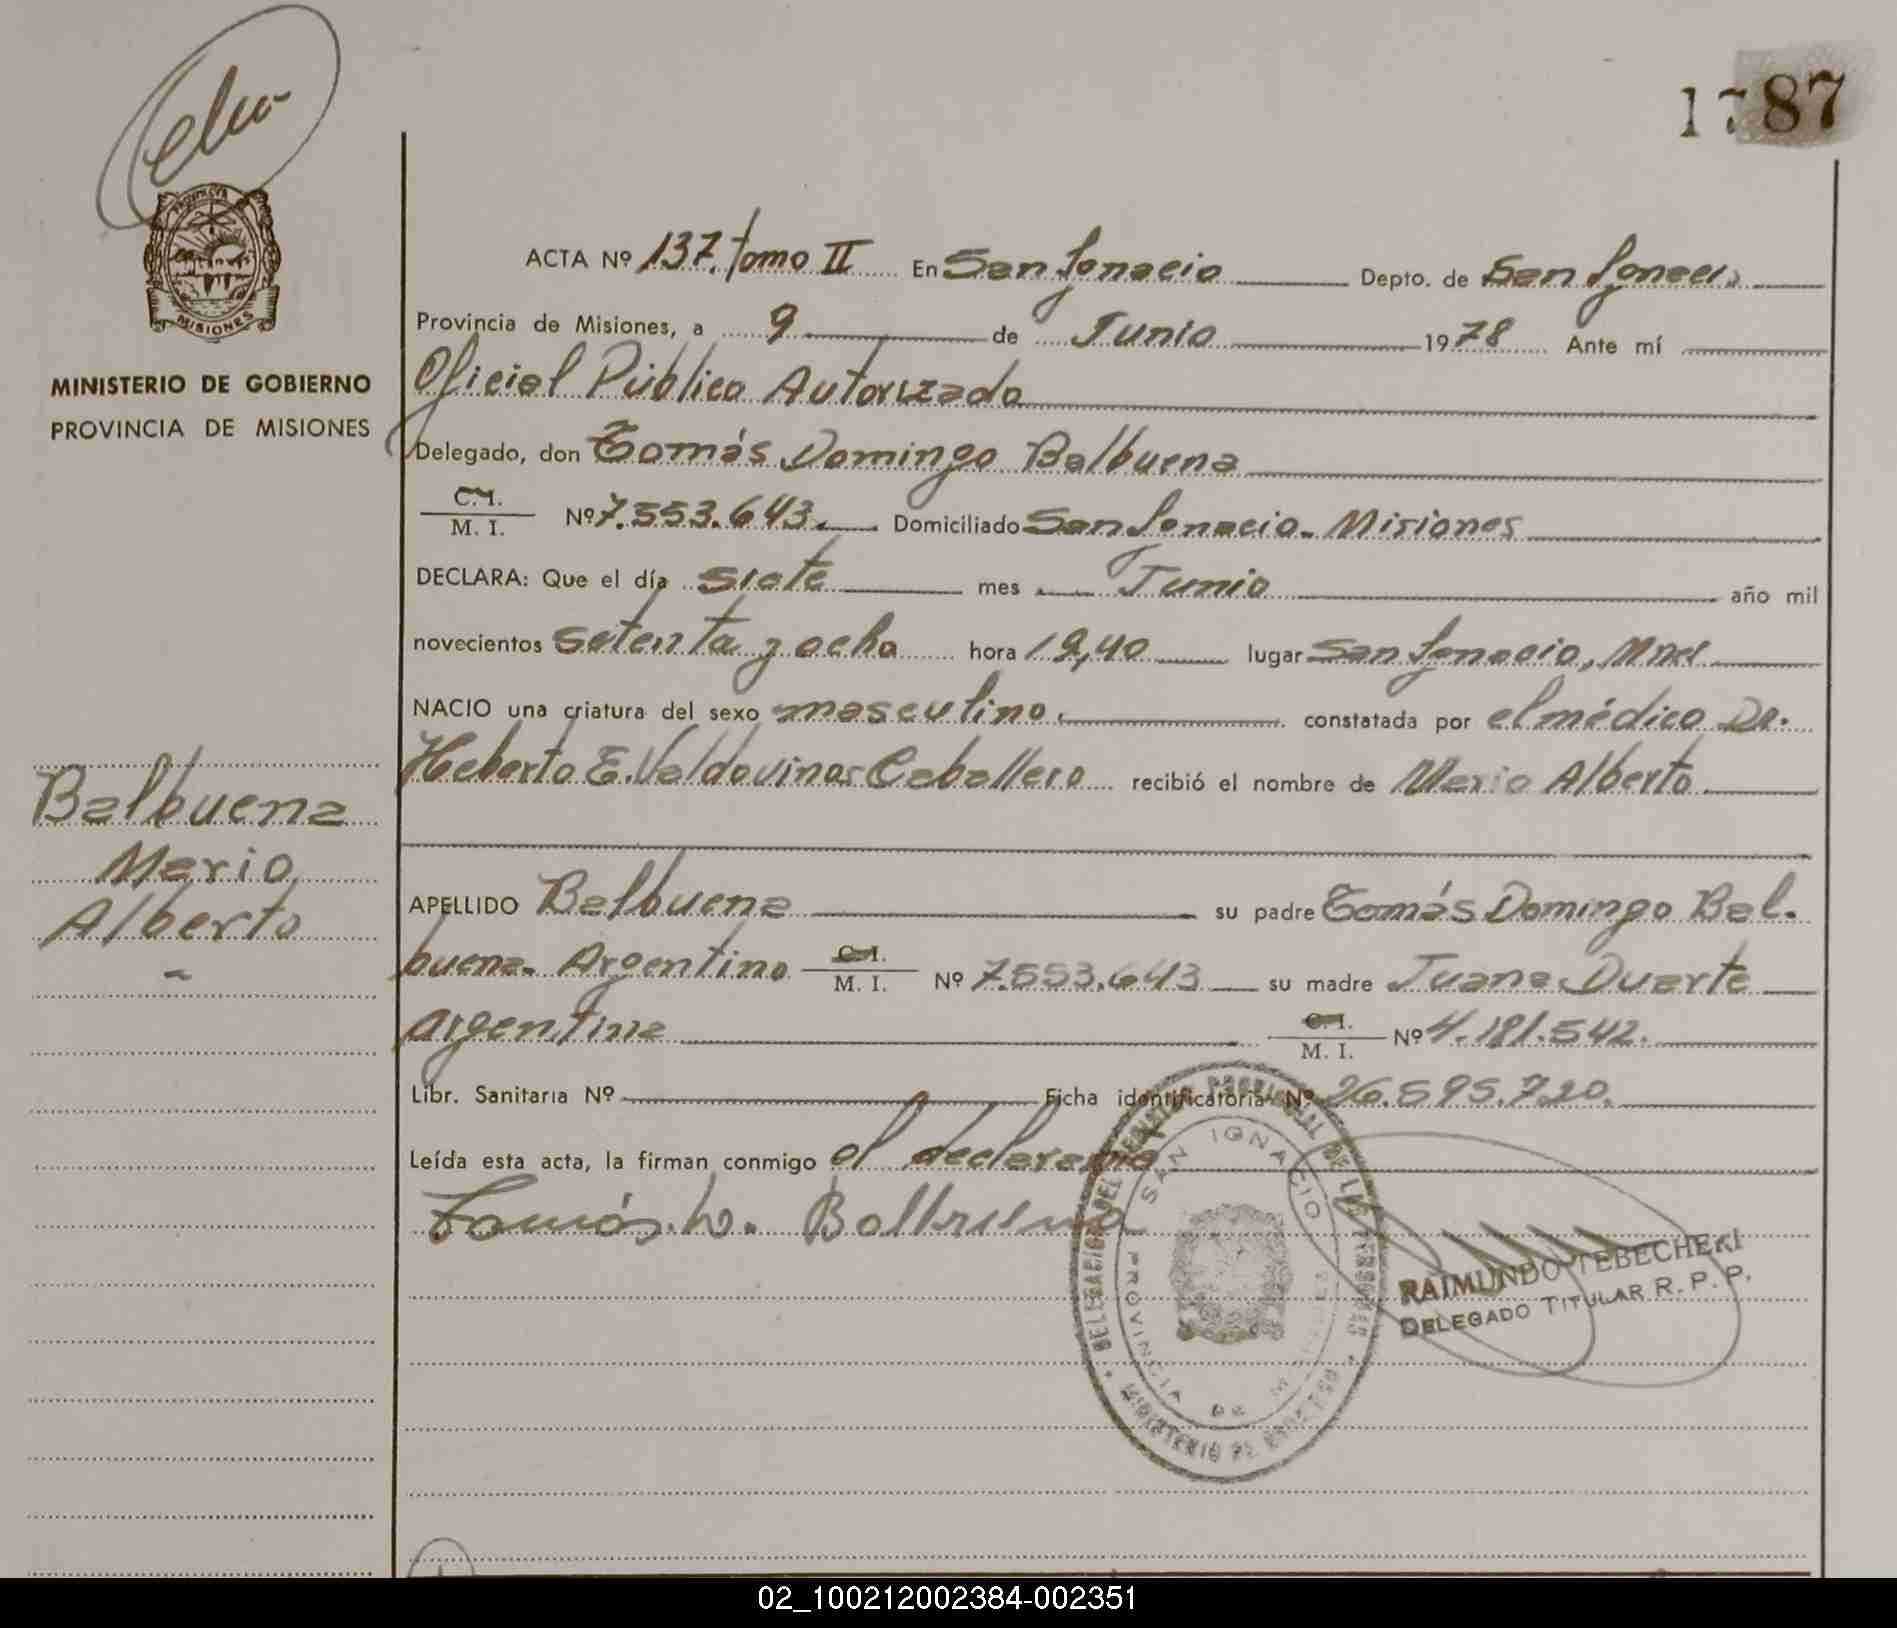 1787
PROVINCIA
MISIONES
MINISTERIO DE GOBIERNO
PROVINCIA DE MISIONES
Balbuena
Mario
Alberto
ACTA Nº 137. tomo II En San Ignacio Depto. de San Ignacio
Provincia de Misiones, a 9 de Junio 1978 Ante mí
Oficial Público Autorizado
Delegado, don Tomás Domingo Balbuena
C. I.
M. I. Nº 7.553.643. Domiciliado San Ignacio. Misiones
DECLARA: Que el día siete mes Junio año mil
novecientos setenta y ocho hora 19,40 lugar San Ignacio, Mnes
NACIO una criatura del sexo masculino. constatada por el médico Dr.
Heberto E. Valdovinos Caballero recibió el nombre de Mario Alberto
APELLIDO Balbuena su padre Tomás Domingo Bal.
buena. Argentino C. I. M. I. Nº 7.553.643 su madre Juana Duarte
argentina C. I. M. I. Nº 4.181.542.
Libr. Sanitaria Nº Ficha identificatoria Nº 26.595.720.
Leída esta acta, la firman conmigo el declarante
Tomás. D. Balbuena
SAN IGNACIO
PROVINCIA DE MISIONES
RAIMUNDO TEBECHERI
DELEGADO TITULAR R. P. P.
02_100212002384-002351